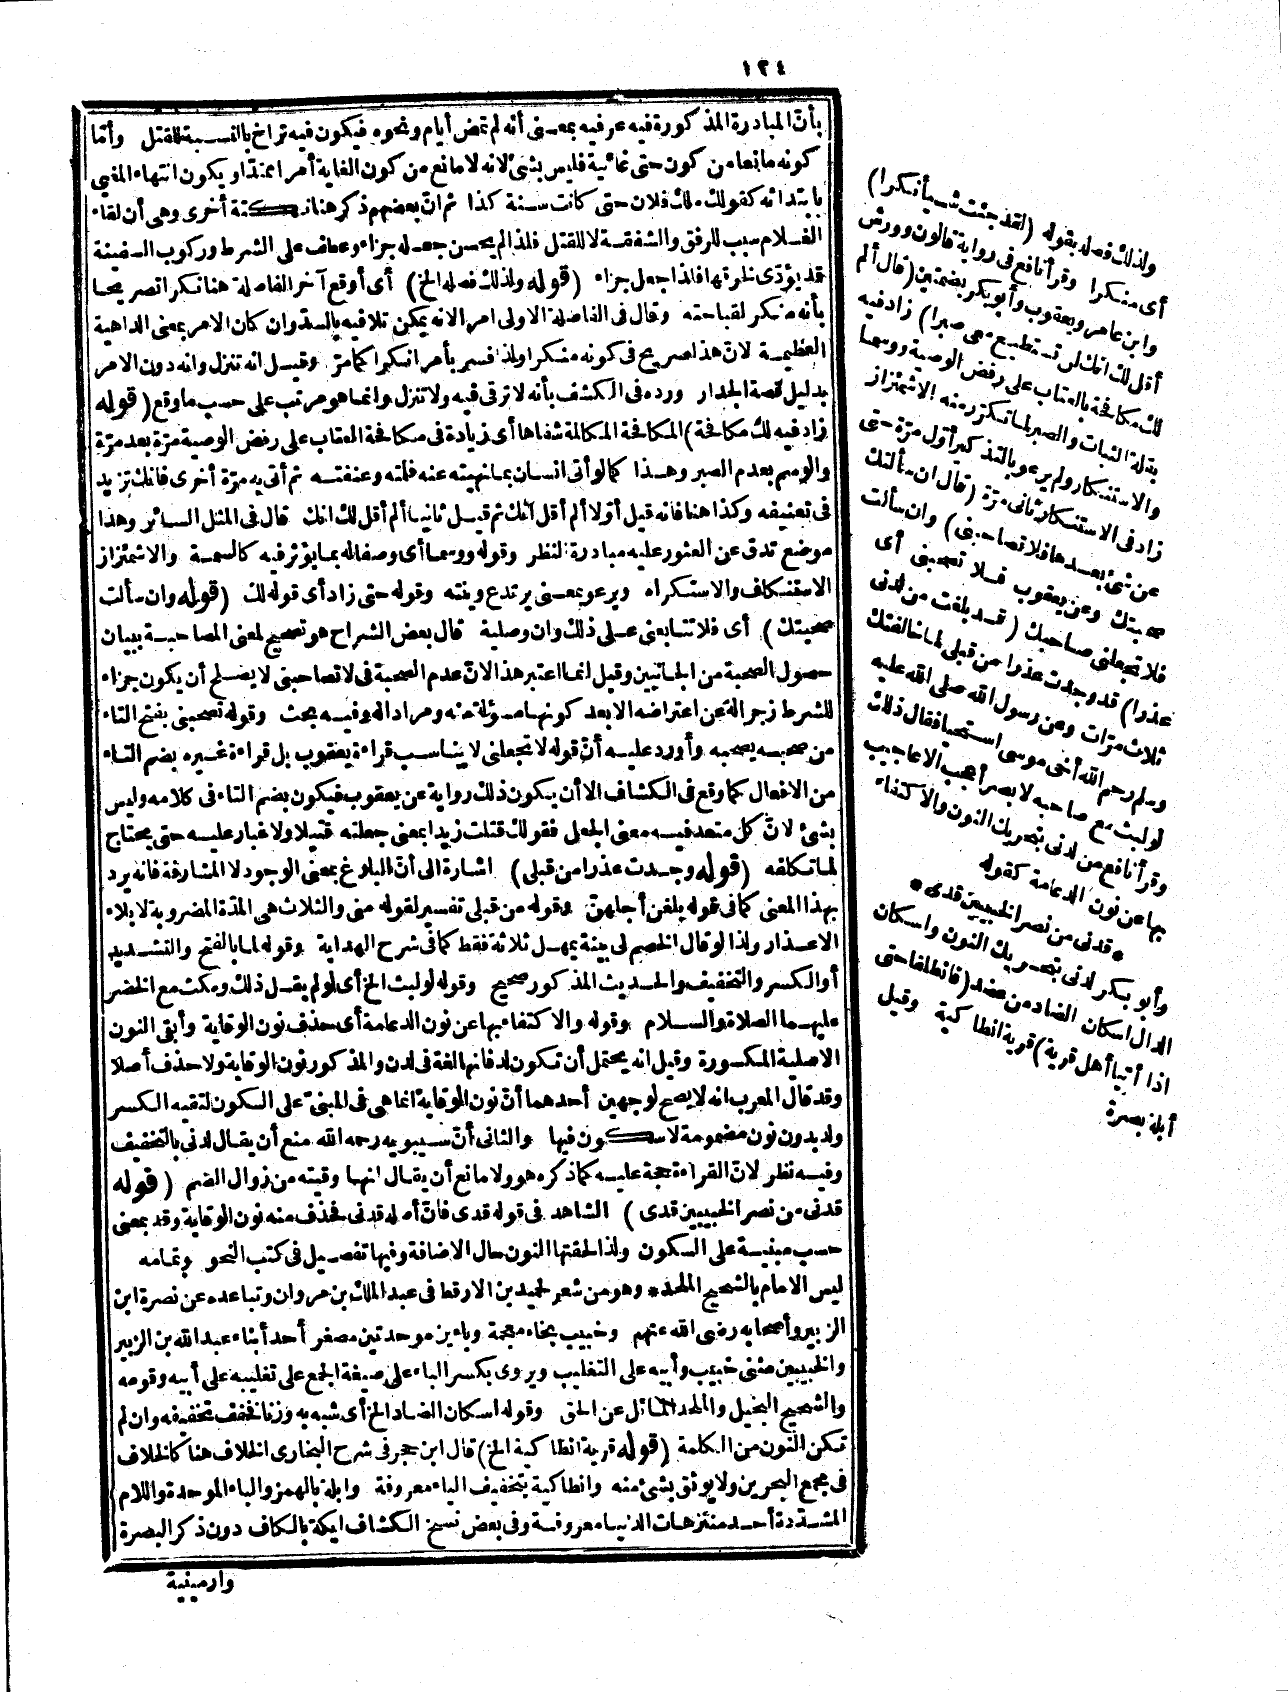 ١٢٤
بأنّ المبادرة المذكورة فيه عرفيه بمعنى أنه لم تمض أيام ونحوه فيكون فيه تراخ بالنسبة للقتل وأمّا
كونه مانعا من كون حتى غائية فليس بشئ لانه لا مانع من كون الغاية أمرا ممتدّا ويكون انتهاء المغيي
بابتدائه كقولك ملك فلان حتى كانت سنة كذا ثم انّ بعضهم ذكر هنا نكتة أخرى وهى أن لقاء
الغلام سبب للرفق والشفقة لا للقتل فلذا لم يحسن جعله جزاء وعطف على الشرط وركوب السفينة
قد يؤدّى لخرقها فلذا جعل جزاء (قوله ولذلك فصله الخ) أى أوقع آخر الفاصلة هنا نكرا تصريحا
بأنه منكر لقباحته وقال فى الفاصلة الاولى امر الانه يمكن تلافيه بالسدّ وان كان الامر بمعنى الداهية
العظيمة لانّ هذا صريح فى كونه منكرا ولذا فسر بأمر انكرا كما مرّ وقيل انه تنزل وانه دون الامر
بدليل قصة الجدار ورده فى الكشف بأنه لا ترقى فيه ولا تنزل وانما هو مرتب على حسب ما وقع (قوله
زاد فيه لك مكافحة) المكافحة المكالمة شفاها أى زيادة فى مكافحة العتاب على رفض الوصية مرّة بعد مرّة
والوسم بعدم الصبر وهذا كما لو أتى انسان بما نهيته عنه فلته وعنفته ثم أتى به مرّة أخرى فانك تزيد
فى تعنيفه وكذا هنا فانه قيل أوّلا ألم أقل انك ثم قيل ثانيا ألم أقل لك انك قال فى المثل السائر وهذا
موضع تدق عن العثور عليه مبادرة النظر وقوله ووسما أى وصفاله بما يؤثر فيه كالسمة والاشمئزاز
الاستنكاف والاستكراه ويرعو بمعنى يرتدع وينته وقوله حتى زاد أى قوله لك (قوله وان سألت
صحبتك) أى فلا تتابعنى على ذلك وان وصلية قال بعض الشراح هو تصحيح لمعنى المصاحبة ببيان
حصول الصحبة من الجانبين وقيل انما اعتبر هذا لانّ عدم الصحبة فى لا تصاحبنى لا يصلح أن يكون جزاء
للشرط زجرا له عن اعتراضه الا بعد كونها مسؤلة منه ومرادا له وفيه بحث وقوله تصحبنى بفتح التاء
من صحبه يصحبه وأورد عليه أنّ قوله لا تجعلنى لا يناسب قراءة يعقوب بل قراءة غيره بضم التاء
من الافعال كما وقع فى الكشاف الا أن يكون ذلك رواية عن يعقوب فيكون بضم التاء فى كلامه وليس
بشئ لانّ كل متعد فيه معنى الجعل فقولك قتلت زيدا بمعنى جعلته قتيلا ولا غبار عليه حتى يحتاج
لما تكلفه (قوله وجدت عذرا من قبلى) اشارة الى أنّ البلوغ بمعنى الوجود لا المشارفة فانه يرد
بهذا المعنى كما فى قوله بلغن أجلهنّ وقوله من قبلى تفسير لقوله منى والثلاث هى المدّة المضروبة لابلاء
الاعذار ولذا لو قال الخصم لى بينة يمهل ثلاثة فقط كما فى شرح الهداية وقوله لما بالفتح والتشديد
أو الكسر والتخفيف والحديث المذكور صحيح وقوله لو لبث الخ أى لو لم يقل ذلك ومكث مع الخضر
عليهما الصلاة والسلام وقوله والاكتفاء بها عن نون الدعامة أى حذف نون الوقاية وأبقى النون
الاصلية المكسورة وقيل انه يحتمل أن تكون لد فانها لغة فى لدن والمذكور نون الوقاية ولا حذف أصلا
وقد قال المعرب انه لا يصح لوجهين أحدهما أنّ نون الوقاية انما هى فى المبنىّ على السكون لتقيه الكسر
ولد بدون نون مضمومة لا سكون فيها والثانى أنّ سيبويه رحمه الله منع أن يقال لدنى بالتخفيف
وفيه نظر لانّ القراءة حجة عليه كما ذكره هو ولا مانع أن يقال انها وقيته من زوال الضم (قوله
قدنى من نصر الخبيبين قدى) الشاهد فى قوله قدى فانّ أصله قدنى فحذف منه نون الوقاية وقد بمعنى
حسب مبنية على السكون ولذا لحقتها النون حال الاضافة وفيها تفصيل فى كتب النحو وتمامه
ليس الامام بالشحيح الملحد * وهو من شعر لحميد بن الارقط فى عبد الملك بن مروان وتباعده عن نصرة ابن
الزبير وأصحابه رضى الله عنهم وخبيب بخاء معجمة وباءين موحدتين مصغر أحد أبناء عبد الله بن الزبير
والخبيبين مثنى خبيب وأبيه على التغليب ويروى بكسر الباء على صيغة الجمع على تغليبه على أبيه وقومه
والشحيح البخيل والملحد المائل عن الحق وقوله اسكان الضاد الخ أى شبه به وزنا فخفف تخفيفه وان لم
تكن النون من الكلمة (قوله قرية انطاكية الخ) قال ابن حجر فى شرح البخارى الخلاف هنا كالخلاف
فى مجمع البحرين ولا يوثق بشئ منه وانطاكية بتخفيف الياء معروفة وابلة بالهمز والباء الموحدة واللام
المشدّدة أحد منتزهات الدنيا معروفة وفى بعض نسخ الكشاف ايكة بالكاف دون ذكر البصرة
وارمينية
ولذلك فصله بقوله (لقد جئت شيأ نكرا)
أى منكرا وقرأ نافع فى رواية قالون وورش
وابن عامر ويعقوب وأبو بكر بضمتين (قال ألم
أقل لك انك لن تستطيع معى صبرا) زاد فيه
لك مكافحة بالعتاب على رفض الوصية ووسما
بقلة الثبات والصبر لما تكرّر منه الاشمئزاز
والاستنكار ولم يرعو بالتذكير أوّل مرّة حتى
زاد فى الاستنكار ثانى مرّة (قال ان سألتك
عن شئ بعدها فلا تصاحبنى) وان سألت
صحبتك وعن يعقوب فلا تصحبنى أى
فلا تجعلنى صاحبك (قد بلغت من لدنى
عذرا) قد وجدت عذرا من قبلى لما خالفتك
ثلاث مرّات وعن رسول الله صلى الله عليه
وسلم رحم الله أخى موسى استحيا فقال ذلك
لو لبث مع صاحبه لا بصر أعجب الاعاجيب
وقرأ نافع من لدنى بتحريك النون والاكتفاء
بها عن نون الدعامة كقوله
* قدنى من نصر الخبيبين قدى *
وأبو بكر لدنى بتحريك النون واسكان
الدال اسكان الضاد من عضد (فانطلقا حتى
اذا أتيا أهل قرية) قرية انطاكية وقيل
أبلة بصرة